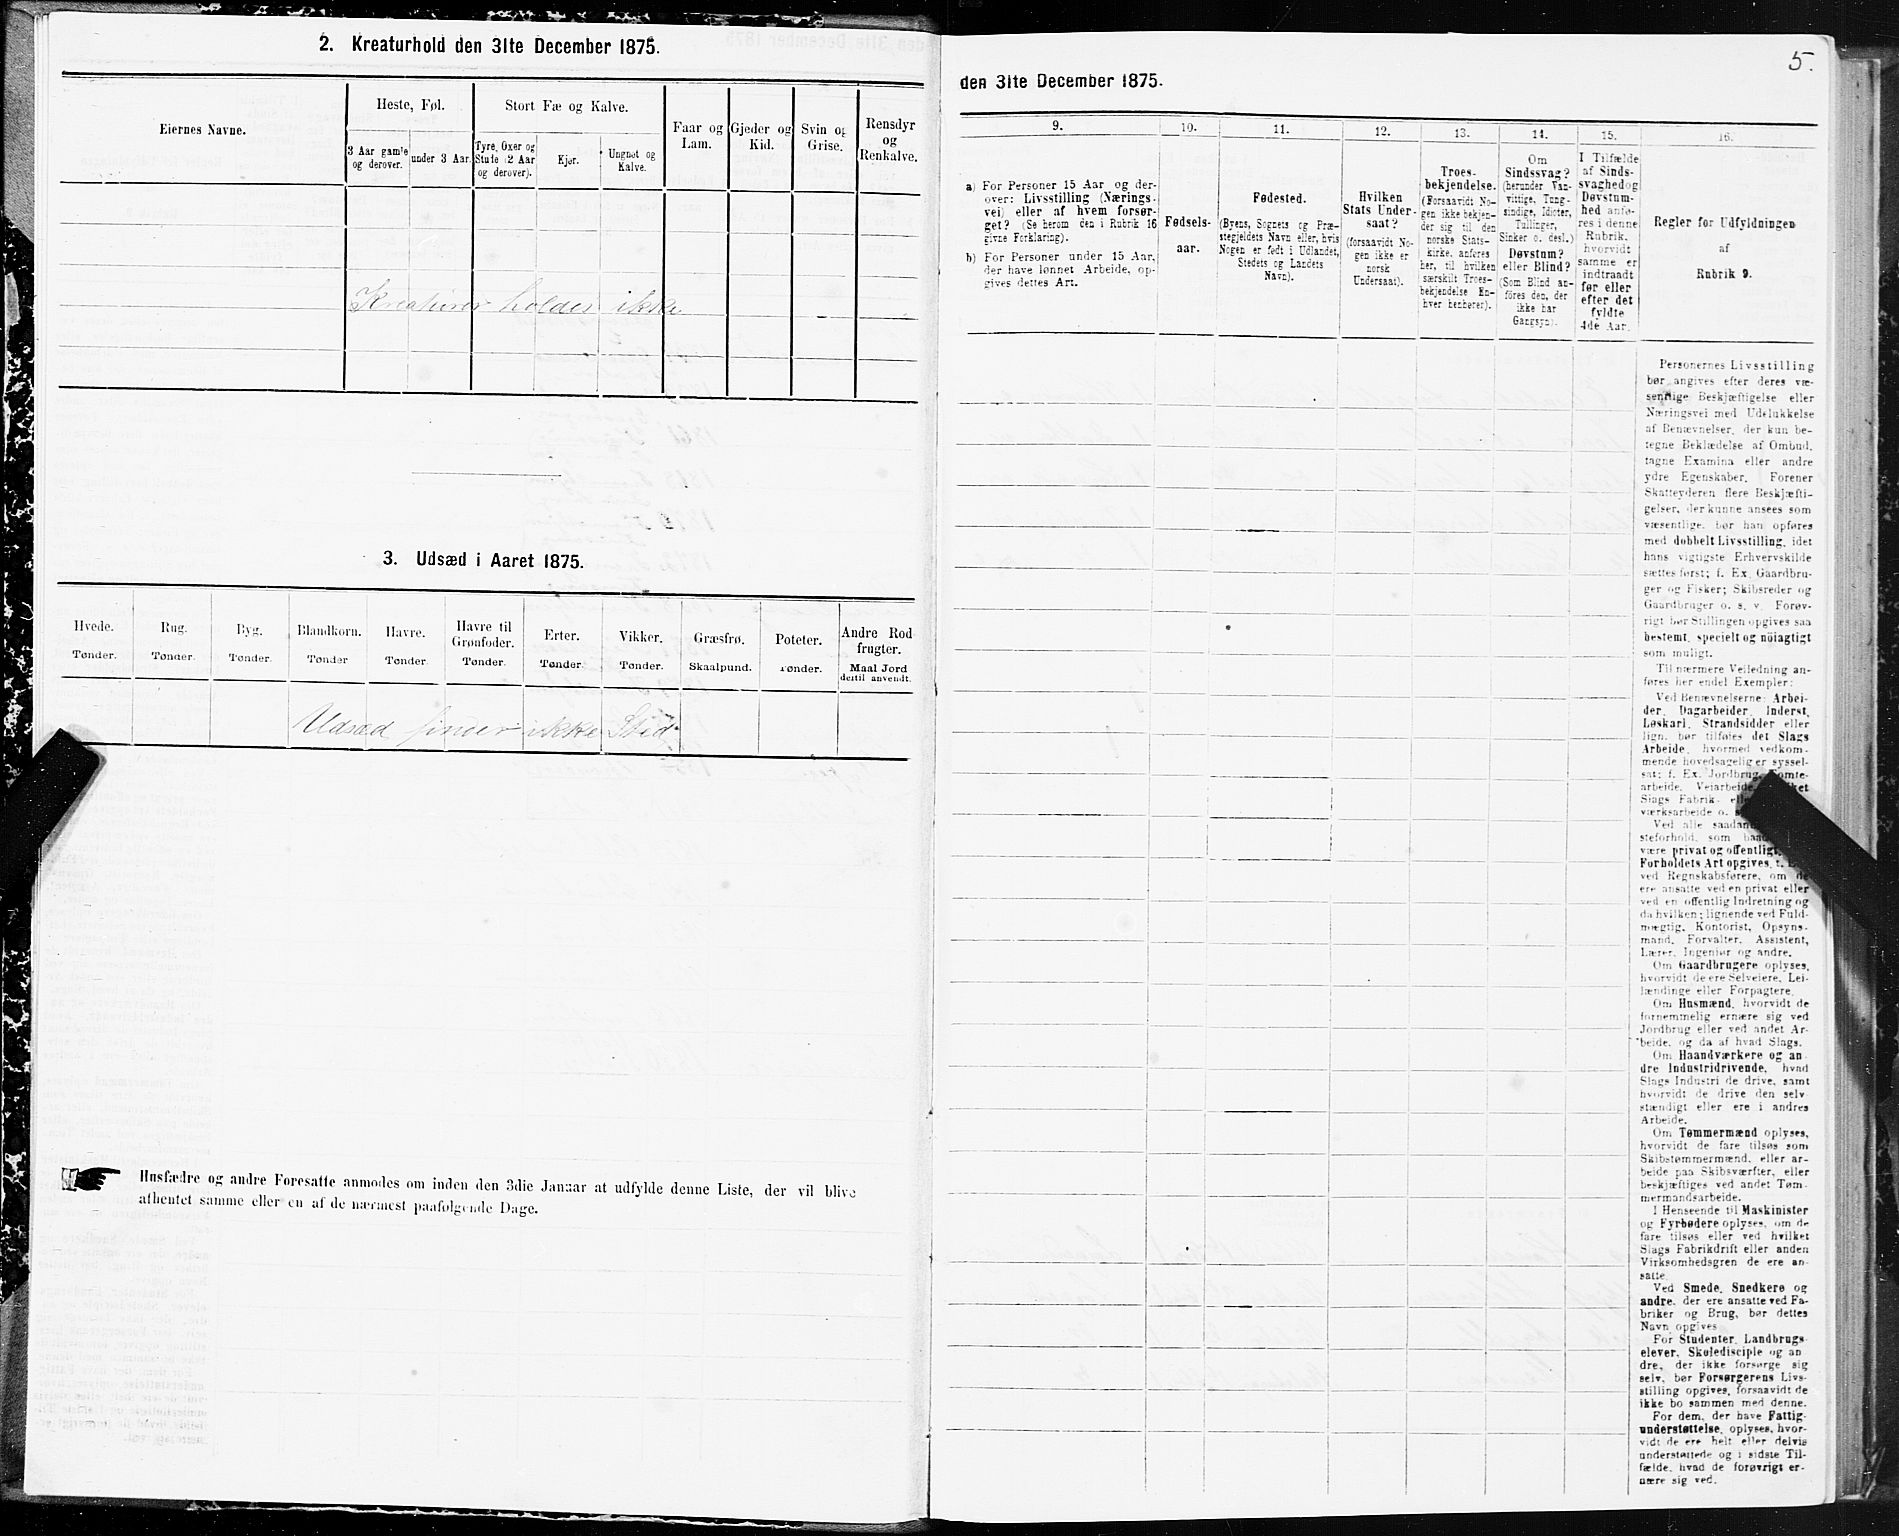 2. Kreaturhold den 31te December 1875.
Eiernes Navne.
Heste, Føl.
3 Aar gamle og derover.
under 3 Aar.
Stort Fæ og Kalve.
Tyre, Oxer og Stude (2 Aar og derover).
Kjør.
Ungnøt og Kalve.
Faar og Lam.
Gjeder og Kid.
Svin og Grise.
Rensdyr og Renkalve.
Kreaturer holdes ikke
3. Udsæd i Aaret 1875.
Hvede. Tønder.
Rug. Tønder.
Byg. Tønder.
Blandkorn. Tønder
Havre. Tønder.
Havre til Grønfoder. Tønder.
Erter. Tønder.
Vikker. Tønder.
Græsfrø. Skaalpund.
Poteter. Tønder.
Andre Rodfrugter. Maal Jord dertil anvendt.
Udsæd finder ikke Sted
Husfædre og andre Foresatte anmodes om inden den 3die Januar at udfylde denne Liste, der vil blive
afhentet samme eller en af de nærmest paafølgende Dage.
5.
den 31te December 1875.
9.
a) For Personer 15 Aar og der-
over: Livsstilling (Nærings-
vei) eller af hvem forsør-
get? (Se herom den i Rubrik 16
givne Forklaring).
b) For Personer under 15 Aar,
der have lønnet Arbeide, op-
gives dettes Art.
10.
Fødsels-
aar.
11.
Fødested.
(Byens, Sognets og Præ-
stegjeldets Navn eller, hvis
Nogen er født i Udlandet,
Stedets og Landets
Navn).
12.
Hvilken
Stats Under-
saat?
(forsaavidt No-
gen ikke er
norsk
Undersaat).
13.
Troes-
bekjendelse.
(Forsaavidt No-
gen ikke bekjen-
der sig til den
norske Stats-
kirke, anføres
her, til hvilken
særskilt Troes-
bekjendelse En-
hver henhører).
14.
Om
Sindssvag?
(herunder Van-
vittige, Tung-
sindige, Idioter,
Tullinger,
Sinker o. desl.)
Døvstum?
eller Blind?
(Som Blind an-
føres den, der
ikke har
Gangsyn).
15.
I Tilfælde
af Sinds-
svaghed og
Døvstum-
hed anfø-
res i denne
Rubrik,
hvorvidt
samme er
indtraadt
før eller
efter det
fyldte
4de Aar.
16.
Regler for Udfyldningen
af
Rubrik 9.
Personernes Livsstilling
bør angives efter deres væ-
sentlige Beskjæftigelse eller
Næringsvei med Udelukkelse
af Benævnelser, der kun be-
tegne Beklædelse af Ombud,
tagne Examina eller andre
ydre Egenskaber. Forener
Skatteyderen flere Beskjæfti-
gelser, der kunne ansees som
væsentlige, bør han opføres
med dobbelt Livsstilling, idet
hans vigtigste Erhvervskilde
sættes først; f. Ex. Gaardbru-
ger og Fisker; Skibsreder og
Gaardbruger o. s. v. Forøv-
rigt bør Stillingen opgives saa
bestemt, specielt og nøiagtigt
som muligt.
Til nærmere Veiledning an-
føres her endel Exempler:
Ved Benævnelserne: Arbei-
der, Dagarbeider, Inderst,
Løskarl, Strandsidder eller
lign. bør tilføies det Slags
Arbeide, hvormed vedkom-
mende hovedsagelig er syssel-
sat; f. Ex. Jordbrug, Tomte-
arbeide, Veiarbeide,
Slags Fabrik-
værksarbeide o.
Ved alle
steforhold, som
være privat og offentligt,
Forholdets Art opgives,
ved Regnskabsførere, om de
ere ansatte ved en privat eller
ved en offentlig Indretning og
da hvilken; lignende ved Fuld-
mægtig, Kontorist, Opsyns-
mand, Forvalter, Assistent,
Lærer, Ingeniør og andre.
Om Gaardbrugere oplyses,
hvorvidt de ere Selveiere, Lei-
lændinge eller Forpagtere.
Om Husmænd, hvorvidt de
fornemmelig ernære sig ved
Jordbrug eller ved andet Ar-
beide, og da af hvad Slags.
Om Haandværkere og an-
dre Industridrivende, hvad
Slags Industri de drive, samt
hvorvidt de drive den selv-
stændigt eller ere i andres
Arbeide.
Om Tømmermænd oplyses,
hvorvidt de fare tilsøs som
Skibstømmermænd, eller ar-
beide paa Skibsværfter, eller
beskjæftiges ved andet Tøm-
mermandsarbeide.
I Henseende til Maskinister
og Fyrbødere oplyses, om de
fare tilsøs eller ved hvilket
Slags Fabrikdrift eller anden
Virksomhedsgren de ere an-
satte.
Ved Smede, Snedkere og
andre, der ere ansatte ved Fa-
briker og Brug, bør dettes
Navn opgives
For Studenter, Landbrugs-
elever, Skoledisciple og an-
dre, der ikke forsørge sig
selv, bør Forsørgerens Livs-
stilling opgives, forsaavidt de
ikke bo sammen med denne.
For dem, der have Fattig-
understøttelse, oplyses, hvor-
vidt de ere helt eller delvis
understøttede og i sidste Til-
fælde, hvad de forøvrigt er-
nære sig ved.